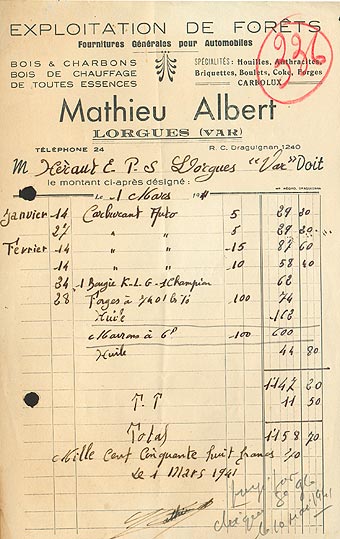 EXPLOITATION DE FORÊTS
Fournitures Générales pour Automobiles
236
BOIS & CHARBONS
BOIS DE CHAUFFAGE
DE TOUTES ESSENCES
SPÉCIALITÉS : Houilles, Anthracites,
Briquettes, Boulets, Coke, Forges
CARBOLUX
Mathieu Albert
LORGUES (VAR)
TÉLÉPHONE 24
R. C. Draguignan 1240
M E P S Lorgues "Var" Doit
le montant ci-après désigné :
Le 1 Mars 1941
Janvier 14 Carburant Auto 5 29 20
27 " " 5 29 20
Février 14 " " 15 87 60
14 " " 10 58 40
24 1 Bougie K-L-G - 1 Champion 62
28 Forges à 100 74
Huile 162
Marrons à 6f 100 600
Huile 44 80
1147 20
T. T 11 50
Total 1158 70
Mille Cent Cinquante huit francs 70
Le 1 Mars 1941